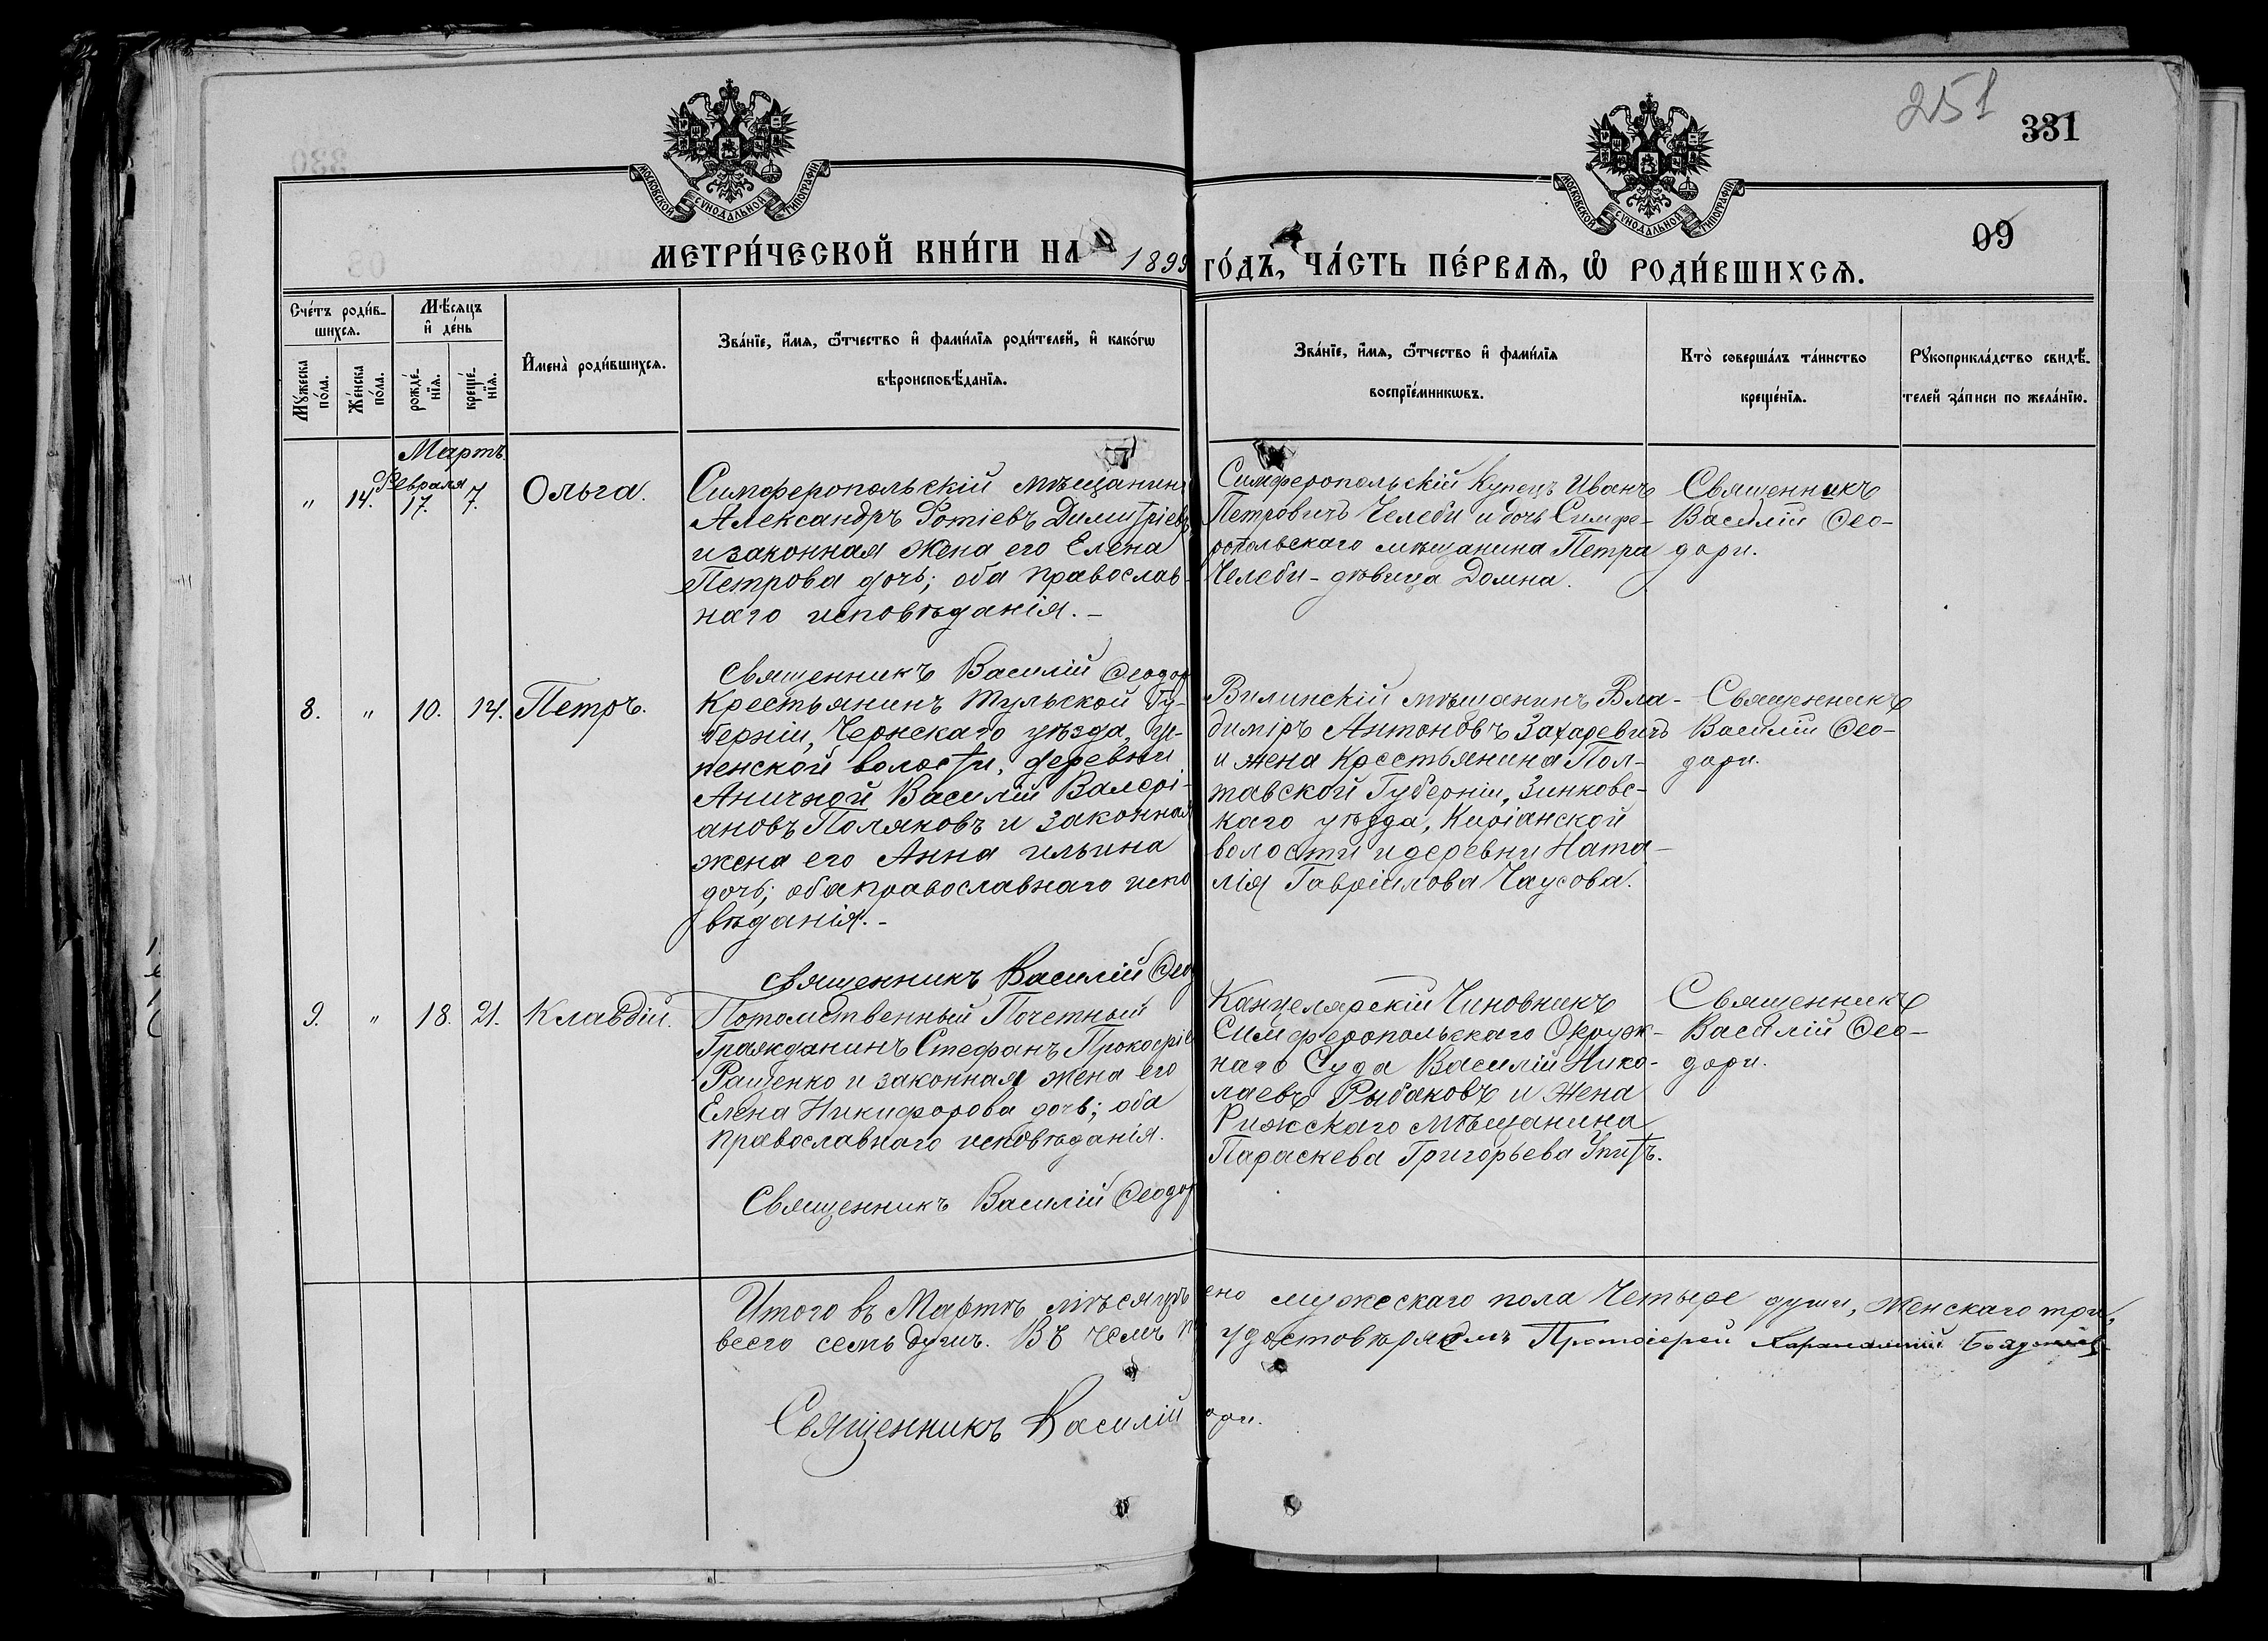 251
331
09
МОСКОВСКОЙ СУНОДАЛЬНОЙ ТИПОГРАФІИ
МОСКОВСКОЙ СУНОДАЛЬНОЙ ТИПОГРАФІИ
МЕТРИ́ЧЕСКОЙ КНИ́ГИ НА 1899 ГО́ДЪ, ЧА́СТЬ ПЕ́РВАѦ, Ѡ҆ РОДИ́ВШИХСѦ.
Сче́тъ роди́в-
шихсѧ.
Мꙋ́жеска
по́ла.
Же́нска
по́ла.
Мѣ́сѧцъ
и҆ де́нь
рожде́-
нїѧ.
креще́-
нїѧ.
И҆мена̀ роди́вшихсѧ.
Зва́нїе, и҆́мѧ, ѻ҆́тчество и҆ фами́лїѧ роди́телей, и҆ како́гѡ
вѣроисповѣ́данїѧ.
Зва́нїе, и҆́мѧ, ѻ҆́тчество и҆ фами́лїѧ
воспрїе́мникѡвъ.
Кто̀ соверша́лъ та́инство
креще́нїѧ.
Рꙋкоприкла́дство свидѣ́-
телей за́писи по жела́нїю.
Мартъ
Февраля
" 14. 17. 7. Ольга.
Симферопольскій мѣщанинъ
Александръ Фотіевъ Димитріевъ
и законная жена его Елена
Петрова дочь; оба православ-
наго исповѣданія. -
Священникъ Василій Ѳеодор
Симферопольскій Купецъ Иванъ
Петровичъ Челеби и дочь Симфе-
ропольскаго мѣщанина Петра
Челеби - дѣвица Домна.
Священникъ
Василій Ѳео-
дори.
8. " 10. 14. Петръ.
Крестьянинъ Тульской Гу-
берніи, Чернскаго уѣзда,
пенской волости, деревни
Аничной Василій Валері-
ановъ Поляковъ и законная
жена его Анна Ильина
дочь; оба православнаго испо
вѣданія. -
Священникъ Василій Ѳео
Виленскій мѣщанинъ Вла-
диміръ Антоновъ Захаревичъ
и жена Крестьянина Пол-
тавской Губерніи, Зинковс-
каго уѣзда,
волости и деревни Ната-
лія Гавріилова Чаусова.
Священникъ
Василій Ѳео-
дори.
9. " 18. 21. Клавдій.
Потомственный Почетный
Гражданинъ Стефанъ Прокофіе
Ращенко и законная жена его
Елена Никифорова дочь; оба
православнаго исповѣданія.
Священникъ Василій Ѳеодор
Канцелярскій Чиновникъ
Симферопольскаго Окруж-
наго Суда Василій Нико-
лаевъ Рыбаковъ и жена
Рижскаго мѣщанина
Параскева Григорьева Упитъ.
Священникъ
Василій Ѳео-
дори.
Итого въ Мартѣ мѣсяцѣ ено мужескаго пола Четыре души, женскаго три,
всего семь душъ. Въ чемъ удостовѣряемъ Протоіерей
Священникъ Василій ори.